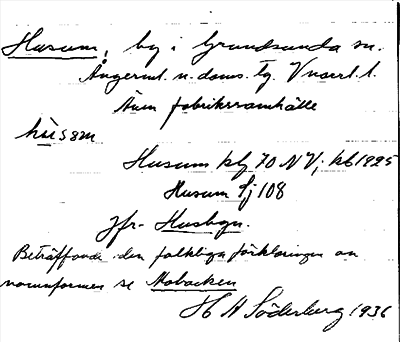 Husum, by i Grundsunda sn.
Ångerml. n. doms. tg. Vnorrl. l.
Även fabrikssamhälle
hùsəm
Husum kbl 70 NV; kb 1925
Husum Sj 108
Jfr. Husbyn.
Beträffande den folkliga förklaringen av
namnformen se Mobacken
H A Söderberg 1936